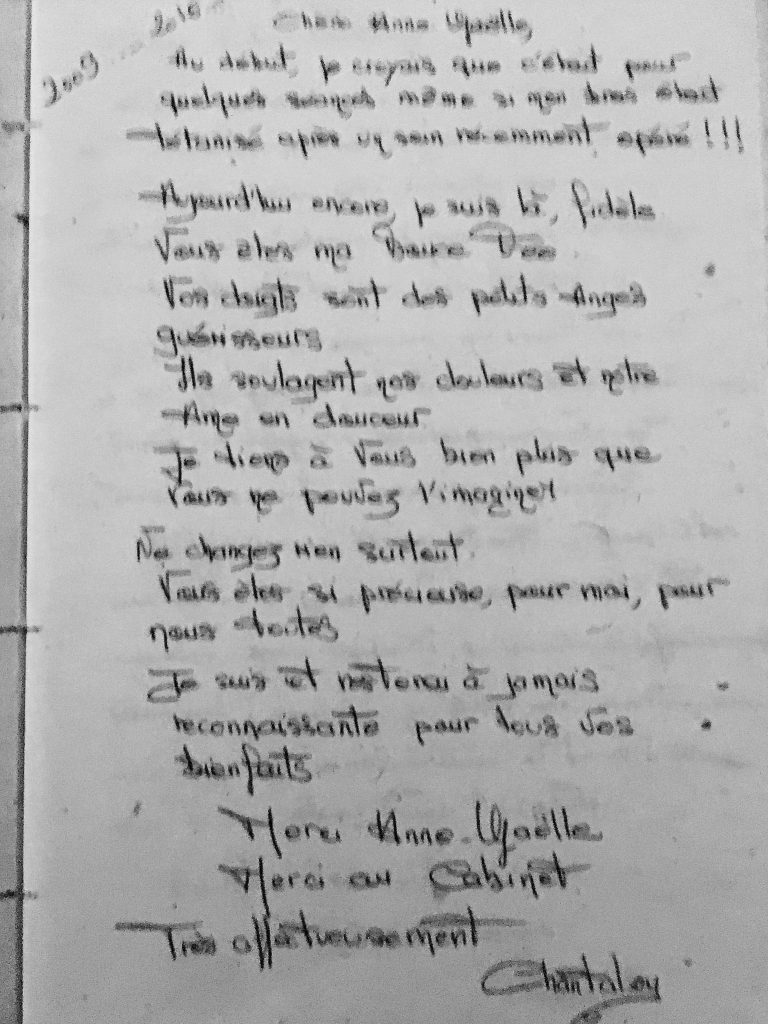 2009 ... 2010
Chère Anne Gaëlle,
Au début, je croyais que c'était pour
quelques séances même si mon bras était
tétanisé après un sein récemment opéré !!!
Aujourd'hui encore, je suis là, fidèle
Vous êtes ma Bonne Fée
Vos doigts sont des petits Anges
guérisseurs
Ils soulagent nos douleurs et notre
Ame en douceur
Je tiens à Vous bien plus que
Vous ne pouvez l'imaginer
Ne changez rien surtout.
Vous êtes si précieuse, pour moi, pour
nous toutes
Je suis et resterai à jamais
reconnaissante pour tous vos
bienfaits
Merci Anne-Gaëlle
Merci au Cabinet
Très affectueusement